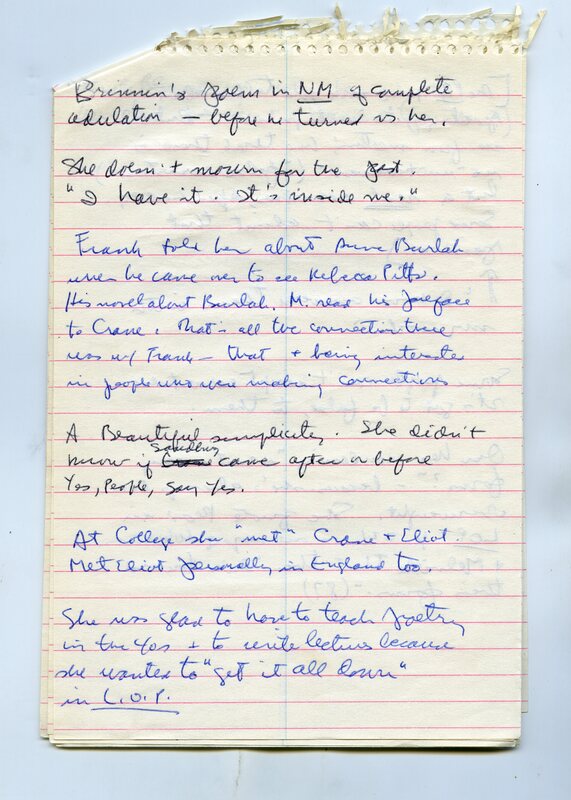 Brinnin's poem in NM of complete
adulation — before he turned vs her.
She doesn't mourn for the past.
"I have it. It's inside me."
Frank told her about Anne Burlak
when he came over to see Rebecca Pitts.
His novel about Burlak. M. read his preface
to Crane. That's all the connection there
was w/ Frank — that + being interested
in people who were making connections
A Beautiful simplicity. She didn't
Sandburg
know if Crane came after or before
Yes, People, Say Yes.
At College she "met" Crane + Eliot.
Met Eliot personally in England too.
She was glad to have to teach poetry
in the 40s + to write lectures because
she wanted to "get it all down"
in L.O.P.